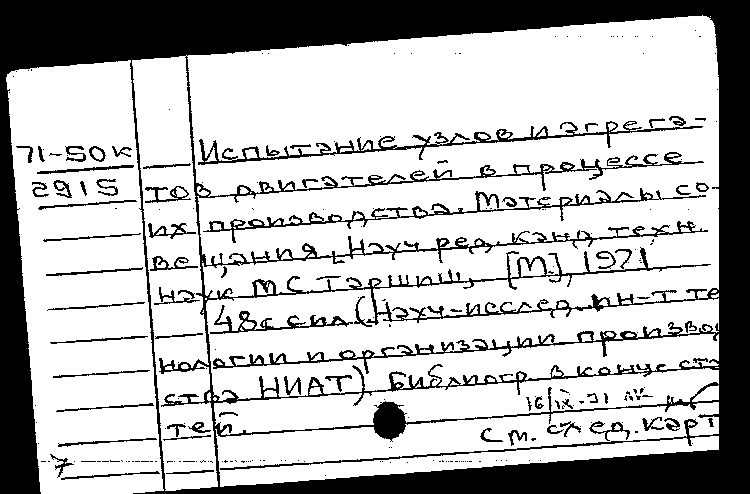 71-50К Испытание узлов и агрега-
2915 тов двигателей в процессе
их производства. Материалы со-
вещания. [Науч. ред. канд. техн.
наук М.С. Таршиш], [М.], 1971.
48 с. с ил. (Науч.-исслед. ин-т те
нологии и организации произво
ства НИАТ). Библиогр. в конце ста
тей.
16/IX-71
См. след. карт
7